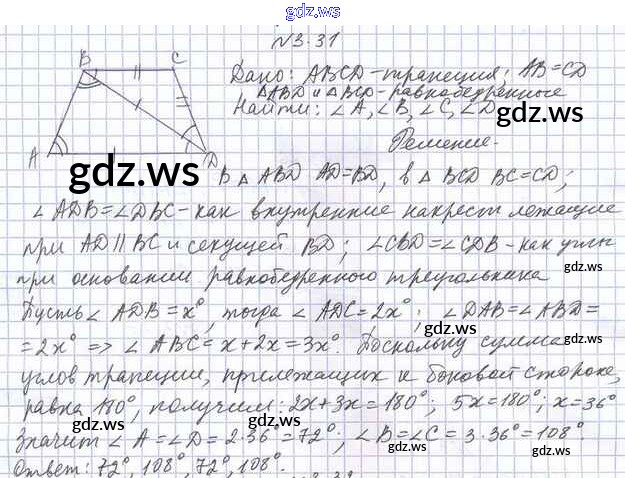 gdz.ws
N3.31
B C
Дано: ABCD - трапеция; AB = CD
△ABD и △BCD - равнобедренные
Найти: ∠A, ∠B, ∠C, ∠D
Решение.
A D
gdz.ws gdz.ws
В △ ABD AD=BD, в △ BCD BC=CD;
∠ ADB = ∠DBC - как внутренние накрест лежащие
при AD || BC и секущей BD; ∠CBD = ∠CDB - как углы
при основании равнобедренного треугольника
gdz.ws
Пусть ∠ ADB = x°, тогда ∠ ADC = 2x°; ∠DAB = ∠ABD =
= 2x° => ∠ ABC = x + 2x = 3x°. Поскольку сумма
gdz.ws
углов трапеции, прилежащих к боковой стороне,
равна 180°, получим: 2x + 3x = 180°; 5x = 180°; x = 36°
gdz.ws gdz.ws
Значит ∠ A = ∠D = 2·36° = 72°; ∠B = ∠C = 3·36° = 108°.
Ответ: 72°, 108°, 72°, 108°.